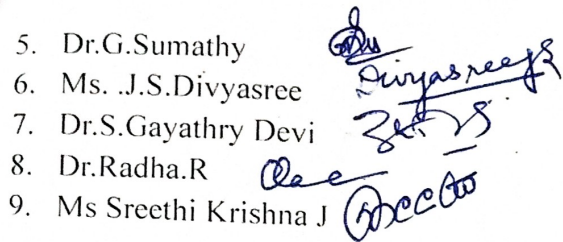 5. Dr.G.Sumathy
6. Ms. .J.S.Divyasree Divyasreejs
7. Dr.S.Gayathry Devi
8. Dr.Radha.R
9. Ms Sreethi Krishna J